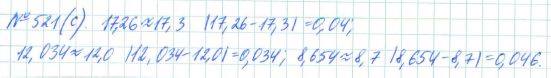 № 521(с). 17,26≈17,3 |17,26-17,3|=0,04;
12,034≈12,0 |12,034-12,0|=0,034; 8,654≈8,7 |8,654-8,7|=0,046.